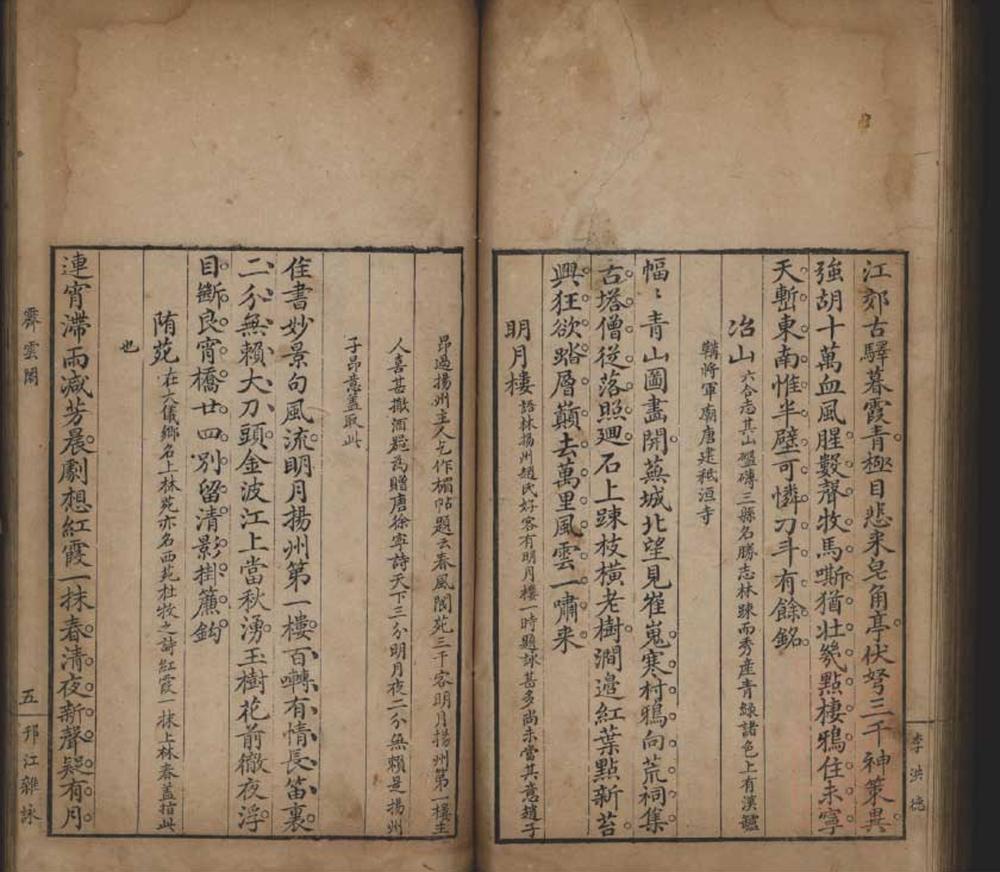 江郊古驛暮霞青極目悲來皂角亭伏弩三千神策異
強胡十萬血風腥鼕聲牧馬嘶猶壯幾點棲鴉住未寧
天塹東南惟半壁可憐刁斗有餘銘
冶山六合志其山盤磚三縣名勝志林踈而秀產青綠諸色上有漢
韝將軍廟唐建秪洹寺
幅〻青山圖畫開蕪城北望見崔嵬寒村鴉向荒祠集
古塔僧從落照廻石上踈枝橫老樹澗邊紅葉點新苔
興狂欲踏層巔去萬里風雲一嘯來
明月樓語林揚州趙氏好客有明月樓一時題詠甚多尚未當其意趙子
昂過揚州主人乞作楣帖題云春風閬苑三千客明月揚州第一樓主
人喜甚撤酒器為贈唐徐寧詩天下三分明月夜二分無賴是揚州
子昂意蓋取此
佳書妙景句風流明月揚州第一樓百囀有情長笛裏
二分無賴大刀頭金波江上當秋湧玉樹花前徹夜浮
目斷良宵橋廿四別留清影掛簾鈎
隋苑在大儀鄉名上林苑亦名西苑杜牧之詩紅霞一抹上林春蓋指此
也
連宵滯雨減芳晨劇想紅霞一抹春清夜新聲疑有月
李洪德
霽雲閣
五
邗江雜詠